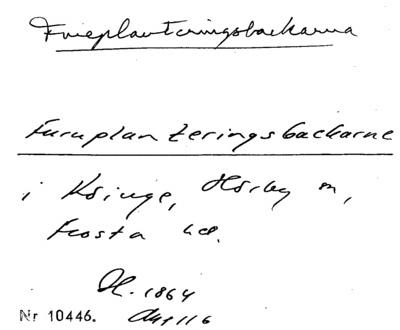 Furuplanteringsbackarna
Furuplanteringsbackarne
i Köinge, Hörby sn,
Frosta hd.
H. 1864
Nr 10446.